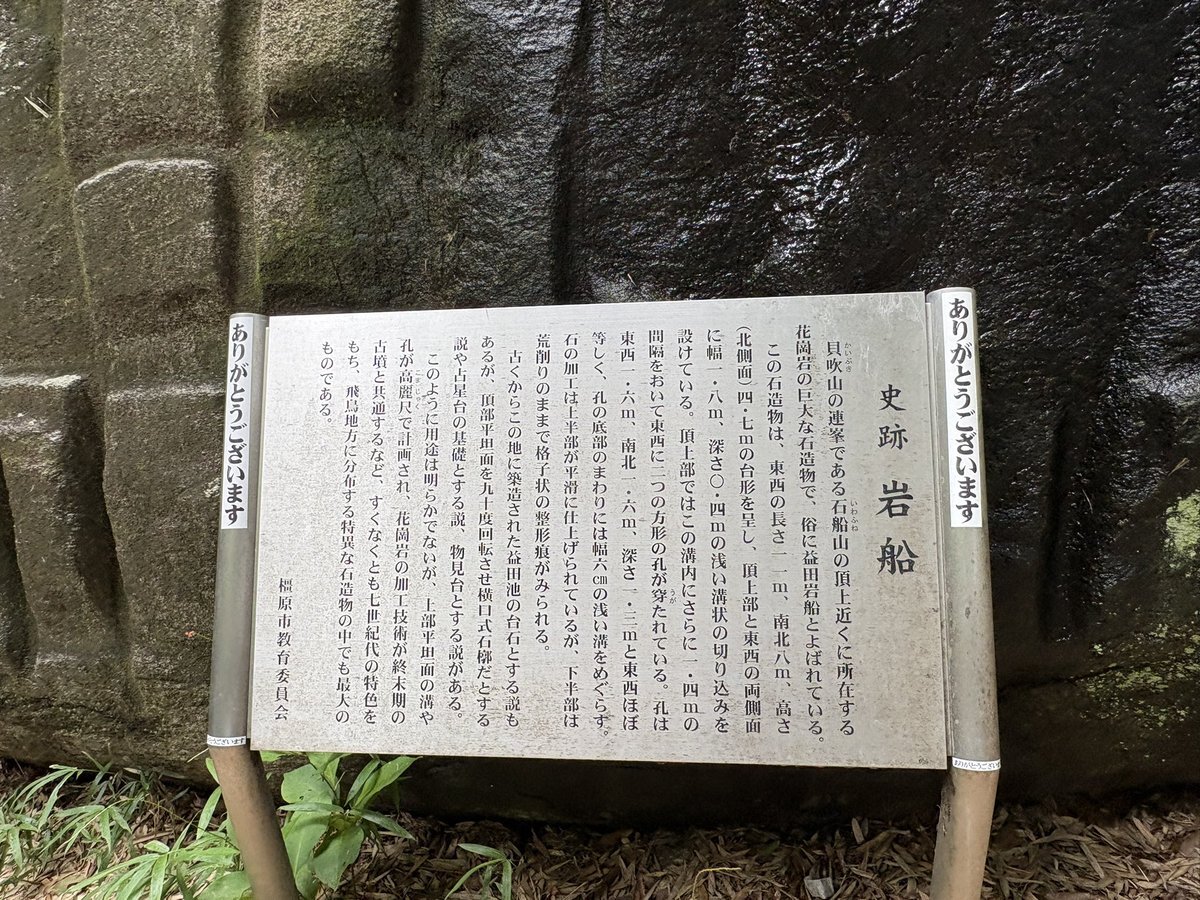 史跡 岩船
貝吹山の連峯である石船山の頂上近くに所在する
花崗岩の巨大な石造物で、俗に益田岩船とよばれている。
この石造物は、東西の長さ一一m、南北八m、高さ
(北側面)四・七mの台形を呈し、頂上部と東西の両側面
に幅一・八m、深さ〇・四mの浅い溝状の切り込みを
設けている。頂上部ではこの溝内にさらに一・四mの
間隔をおいて東西に二つの方形の孔が穿たれている。孔は
東西一・六m、南北一・六m、深さ一・三mと東西ほぼ
等しく、孔の底部のまわりには幅六㎝の浅い溝をめぐらす。
石の加工は上半部が平滑に仕上げられているが、下半部は
荒削りのままで格子状の整形痕がみられる。
古くからこの地に築造された益田池の台石とする説も
あるが、頂部平坦面を九十度回転させ横口式石槨だとする
説や占星台の基礎とする説、物見台とする説がある。
このように用途は明らかでないが、上部平坦面の溝や
孔が高麗尺で計画され、花崗岩の加工技術が終末期の
古墳と共通するなど、すくなくとも七世紀代の特色を
もち、飛鳥地方に分布する特異な石造物の中でも最大の
ものである。
橿原市教育委員会
ありがとうございます
ありがとうございます